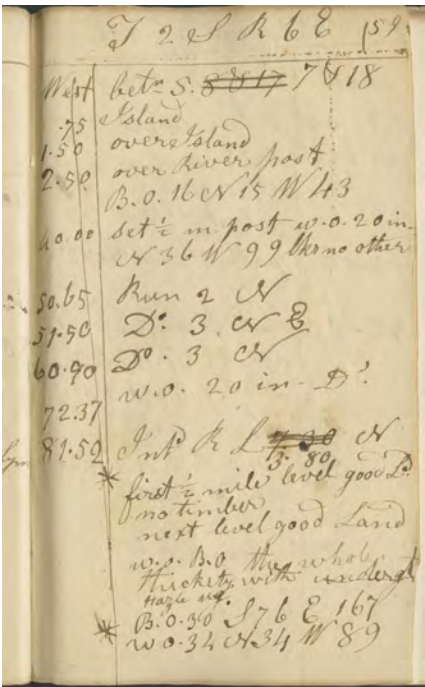 T 2 S R 6 E 159
West betn S. 8 & 17 7 & 18
.75 Island
1.50 over Island
2.50 over River post
B.O. 16 N 15 W 43
40.00 set ½ m post w.o. 20 in.
N 36 W 99 lks no other
50.65 Run 2 N
51.50 Do. 3. N E
60.90 Do. 3 N
72.37 w.o. 20 in. D.
81.52 Intd R L 7.30 N
3. 80
* first ½ mile level good Ld
no timber
next level good Land
w.o. B.O the whole
thickety with undergt
Hazle
B.O. 30 S 76 E 167
* W O. 34 N 34 W 89